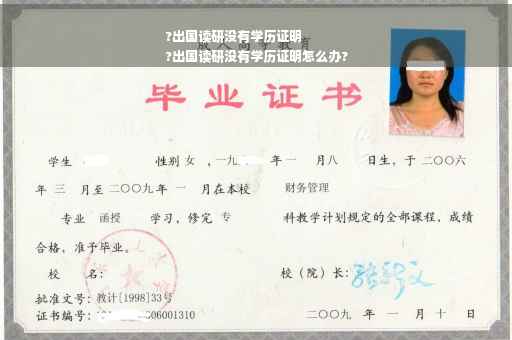 ?出国读研没有学历证明
成人高等教育
?出国读研没有学历证明怎么办?
毕业证书
学生 性别 女 ,一九 年 一 月 八 日生,于 二〇〇六
年 三 月至 二〇〇九 年 一 月在本校 财务管理
专业 函授 学习,修完 专 科教学计划规定的全部课程,成绩
合格,准予毕业。
校 名: 校(院)长:
批准文号:教计[1998]33号
证书编号: 06001310 二〇〇九 年 一 月 十 日